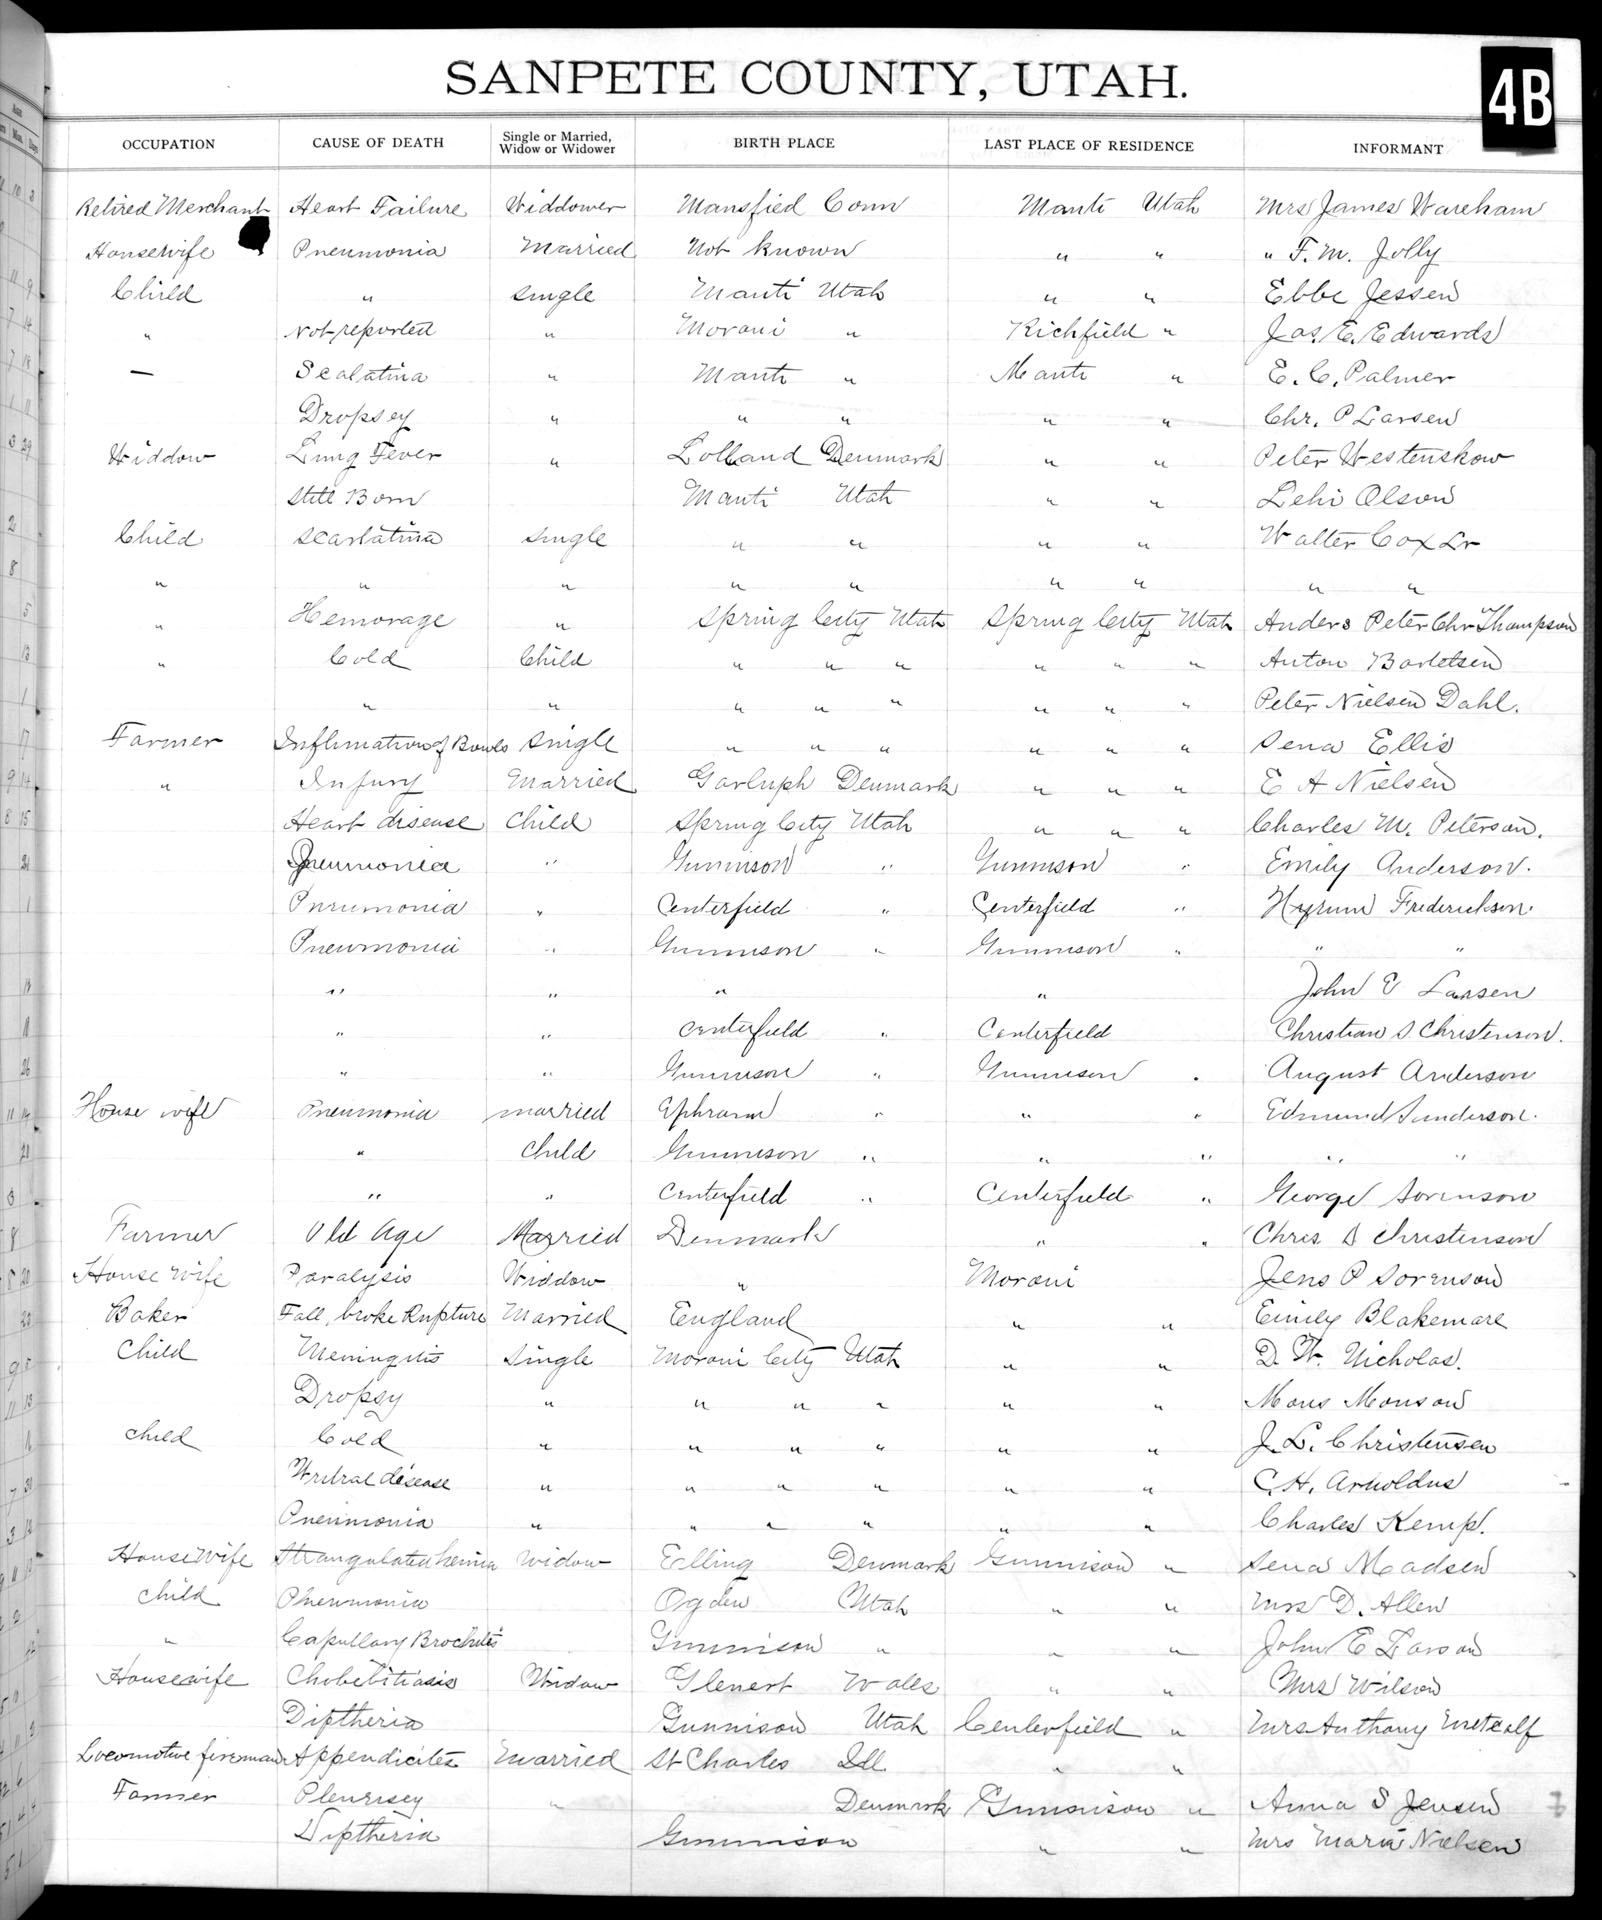 SANPETE COUNTY, UTAH.
4B
OCCUPATION CAUSE OF DEATH Single or Married, Widow or Widower BIRTH PLACE LAST PLACE OF RESIDENCE INFORMANT
Retired Merchant Heart Failure Widdower Mansfied Conn Manti Utah Mrs James Wareham
Housewife Pneumonia Married Not known " " " F. M. Jolly
Child " single Manti Utah " " Ebbe Jessen
" Not reported " Moroni " Richfield " Jas. E. Edwards
— Scalatina " Manti " Manti " E. C. Palmer
Dropsey " " " " " Chr. P Larsen
Widdow Lung Fever " Lolland Denmark " " Peter Westenskow
Still Born Manti Utah " " Lehi Olson
Child Scarlatina single " " " " Walter Cox Sr
" " " " " " " " "
" Hemorage " Spring City Utah Spring City Utah Anders Peter Chr Thompson
" Cold Child " " " " " " Anton
" " " " " " " " Peter Nielsen Dahl.
Farmer Inflimation of Bowls single " " " " " " Sena Ellis
" Injury Married Denmark " " " E A Nielsen
Heart disease Child Spring City Utah " " " Charles M. Peterson.
Pneumonia " Gunnison " Gunnison " Emily Anderson.
Pneumonia " Centerfield " Centerfield " Hyrum Frederickson.
Pneumonia " Gunnison " Gunnison " " "
" " " " John E Larsen
" " Centerfield " Centerfield Christian S Christenson.
" " Gunnison " Gunnison " August Anderson
House wife Pneumonia married Ephraim " " " Edmund Sunderson.
" Child Gunnison " " " " "
" " Centerfield " Centerfield " George Sorenson
Farmer Old Age Married Denmark " " Chris S Christenson
House Wife Paralysis Widdow " Moroni Jens P Sorenson
Baker Fall, broke Rupture Married England " " Emily Blakemore
Child Meningitis Single Moroni City Utah " " D. W. Nicholas.
Dropsy " " " " " " Mons Monson
child Cold " " " " " " J. L. Christensen
disease " " " " " " C. H. Arnoldus
Pneumonia " " " " " " Charles Kemp.
House Wife Strangulated hernia Widow Elling Denmark Gunnison " Sena Madsen
child Pneumonia Ogden Utah " " Mrs D. Allen
" Capullary Gunnison " " " John E Larson
Housewife Widow Wales " " Mrs Wilson
Diptheria Gunnison Utah Centerfield " Mrs Anthony Metcalf
Locomotive fireman Appendicites Married St Charles Ill " "
Farmer Pleurisey " Denmark Gunnison " Anna S Jensen
Diptheria Gunnison " " Mrs Maria Nielsen